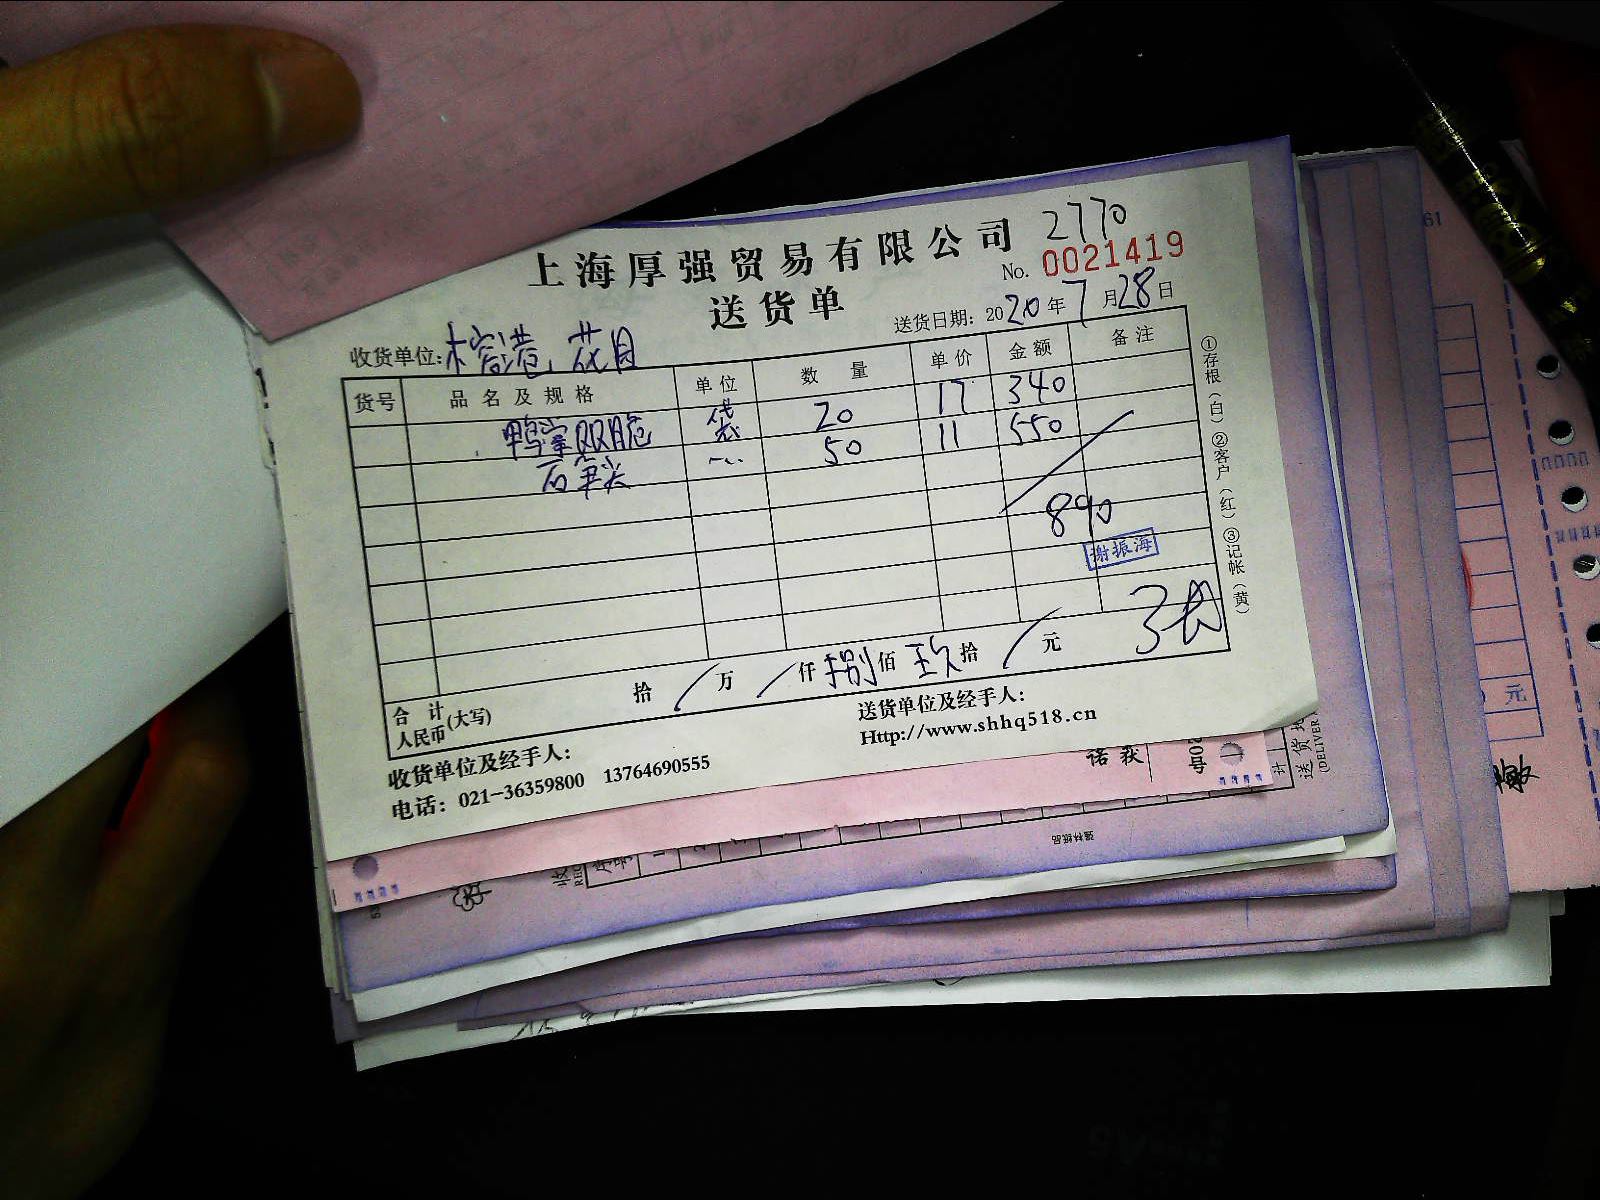 2770
上海厚强贸易有限公司
No. 0021419
送货单
送货日期: 2020年7月28日
收货单位: 榕港, 花月
货号 品名及规格 单位 数量 单价 金额 备注
鸭掌双脆 袋 20 17 340
石笋尖 50 11 550
890
谢振海
合计人民币(大写) 拾 万 仟 捌 佰 玖 拾 元
收货单位及经手人:
送货单位及经手人:
电话: 021-36359800 13764690555
Http://www.shhq518.cn
①存根(白)②客户(红)③记帐(黄)
诺 获
61
元